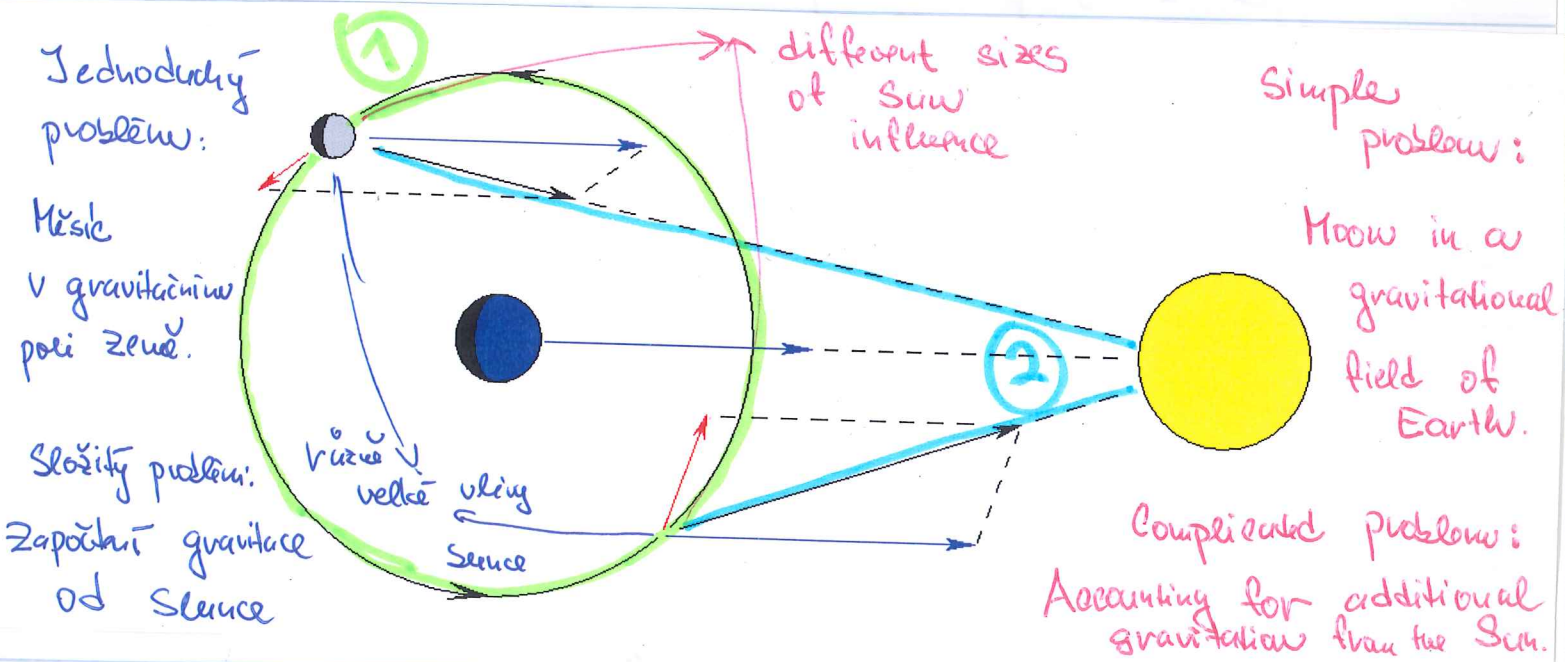 Jednoduchý
problém:
Měsíc
v gravitačním
poli Země.
Složitý problém:
Započtení gravitace
od Slunce
1
různě
velké vlivy
Slunce
2
different sizes
of Sun
influence
Simple
problem:
Moon in a
gravitational
field of
Earth.
Complicated problem:
Accounting for additional
gravitation from the Sun.